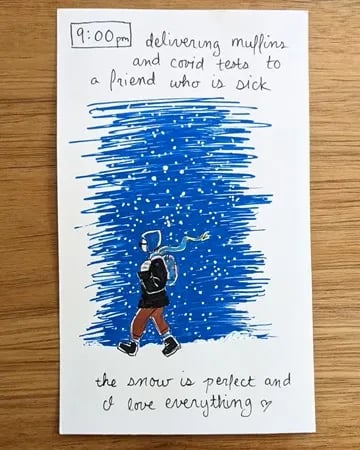 9:00pm
delivering muffins
and covid tests to
a friend who is sick
the snow is perfect and
I love everything ♡